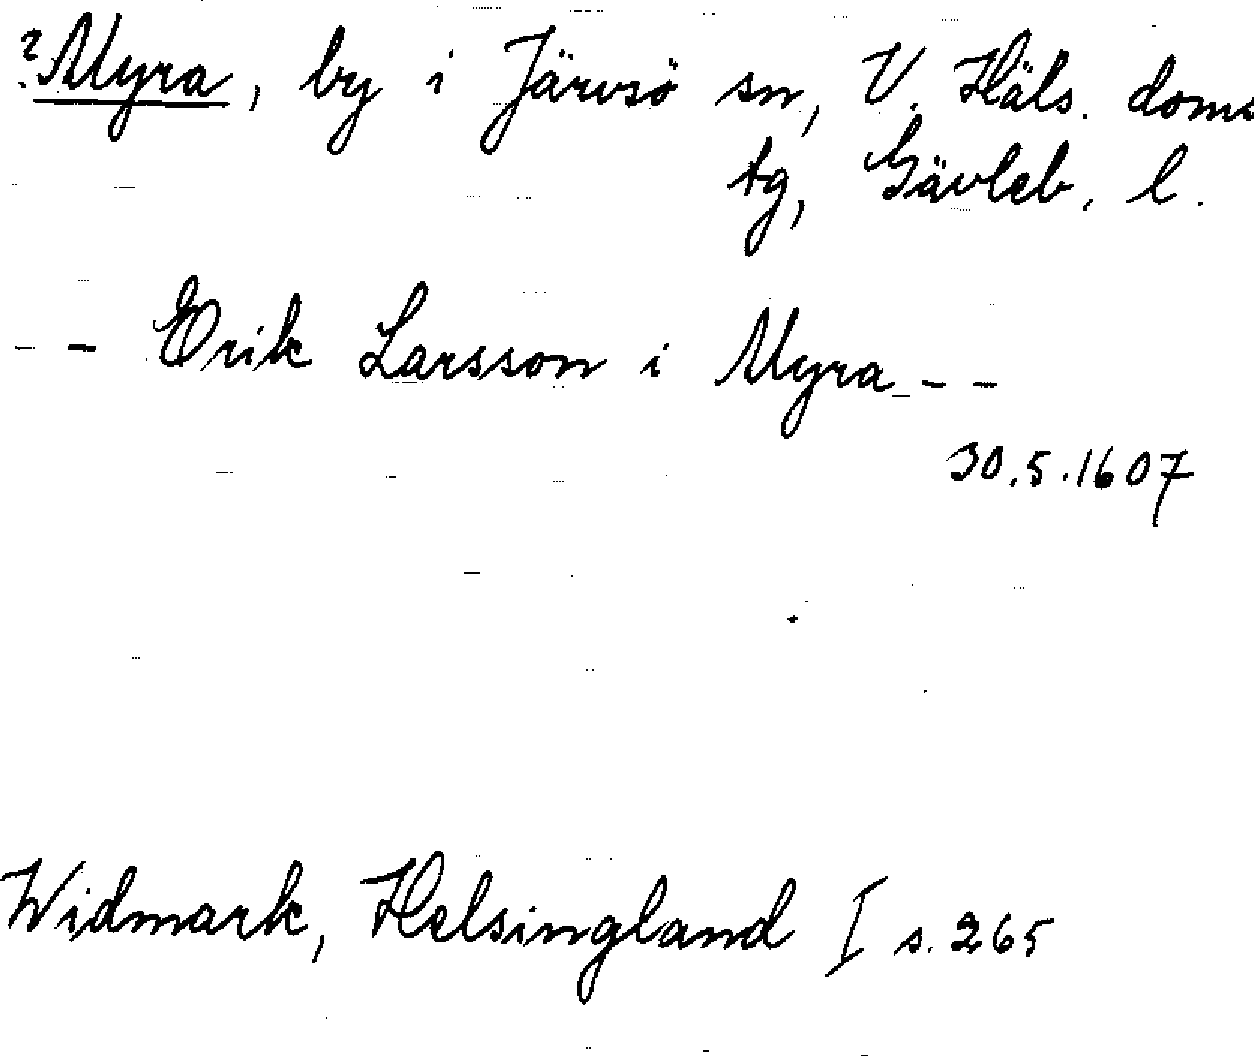 ?Myra, by i Järvsö sn, V. Häls. doms
tg, Gävleb. l.
- - Erik Larsson i Myra - -
30.5.1607
Widmark, Helsingland I s. 265